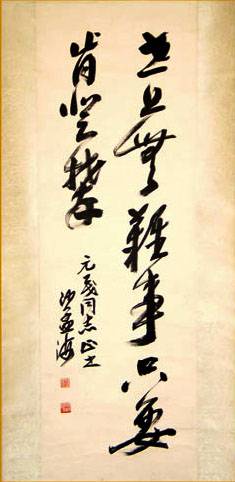 世上無難事只要
肯登攀
元茂同志正之
沙孟海